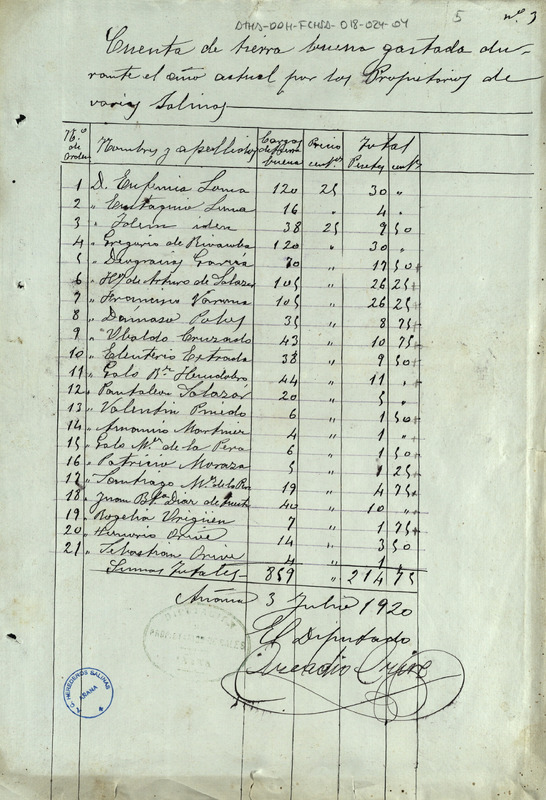 DTHD-DDH-FCHSD-018-024-04
5 nº 3
Cuenta de tierra buena gastada du-
rante el año actual por los Propietarios de
varias Salinas
Nº de Orden Nombres y apellidos Cargas de tierra buena Precio cent.s Total Pesetas cent.s
1 D. Eufemia Loma 120 25 30 "
2 " Eustaquio Loma 16 " 4 "
3 " idem 38 25 9 50
4 " Gregorio de 120 " 30 "
5 " Deogracias García 70 " 17 50
6 " H.s de Arturo de Salazar 105 " 26 25
7 " Francisco Varona 105 " 26 25
8 " Dámaso 35 " 8 75
9 " Ubaldo Cruzado 43 " 10 75
10 " Eleuterio Estrada 38 " 9 50
11 " Galo 44 " 11 "
12 " Pantaleon Salazar 20 " 5 "
13 " Valentin Pinedo 6 " 1 50
14 " Martinez 4 " 1 "
15 " Galo M.n de la Pera 6 " 1 50
16 " Patricio Moraza 5 " 1 25
17 " Santiago M.n de la 19 " 4 75
18 " Juan B.ta Diaz de 40 " 10 "
19 " Rogelia 7 " 1 75
20 " Orive 14 " 3 50
21 " Sebastian Orive 4 " 1 "
Sumas Totales 859 " 214 75
Añana 3 Julio 1920
El Diputado
PROPIETARIOS DE SALES
AÑANA
HEREDEROS SALINAS
AÑANA